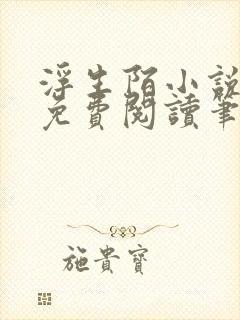 浮生陌小說
免費閱讀筆
施貴寶